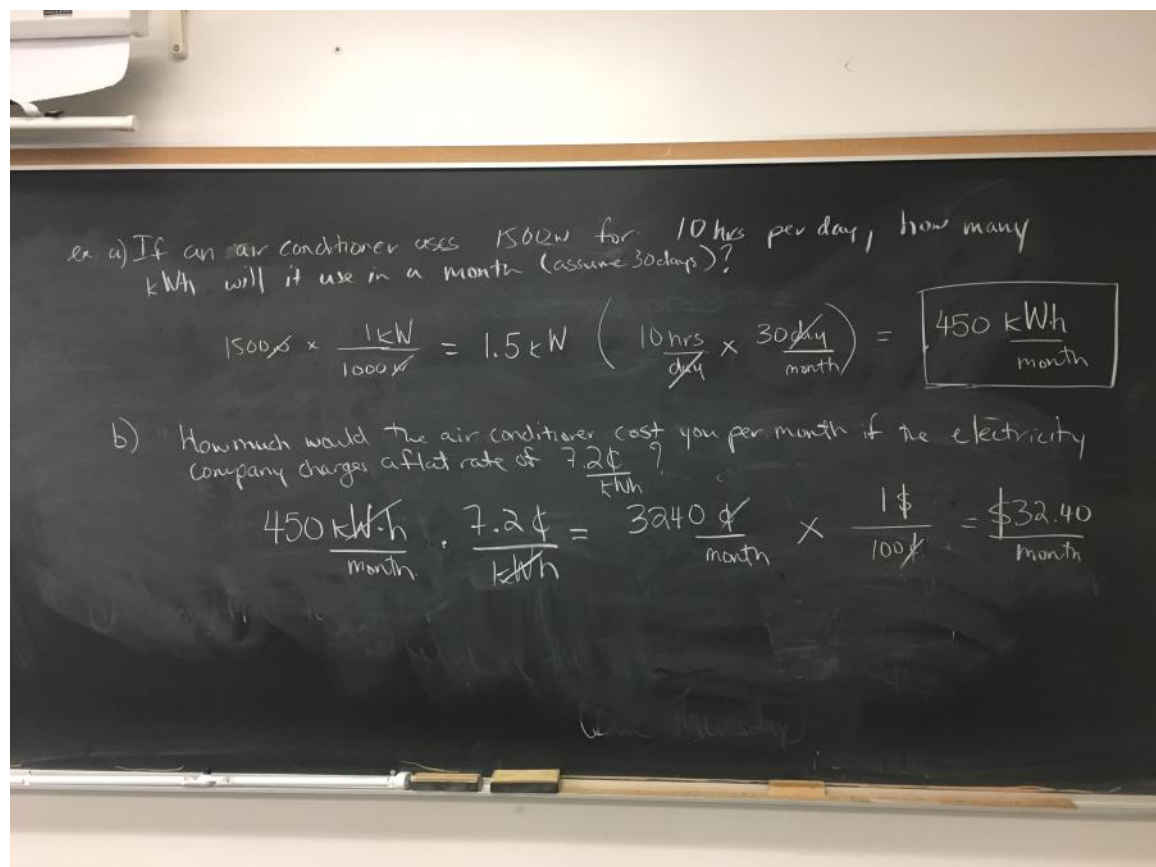 ex a) If an air conditioner uses 1500W for 10 hrs per day, how many
kWh will it use in a month (assume 30 days)?
1500W × 1kW/1000W = 1.5kW (10hrs/day × 30day/month) = 450 kWh/month
b) How much would the air conditioner cost you per month if the electricity
company charges a flat rate of 7.2¢/kWh ?
450 kW·h/month · 7.2¢/kWh = 3240 ¢/month × 1$/100¢ = $32.40/month
(Due Thursday)